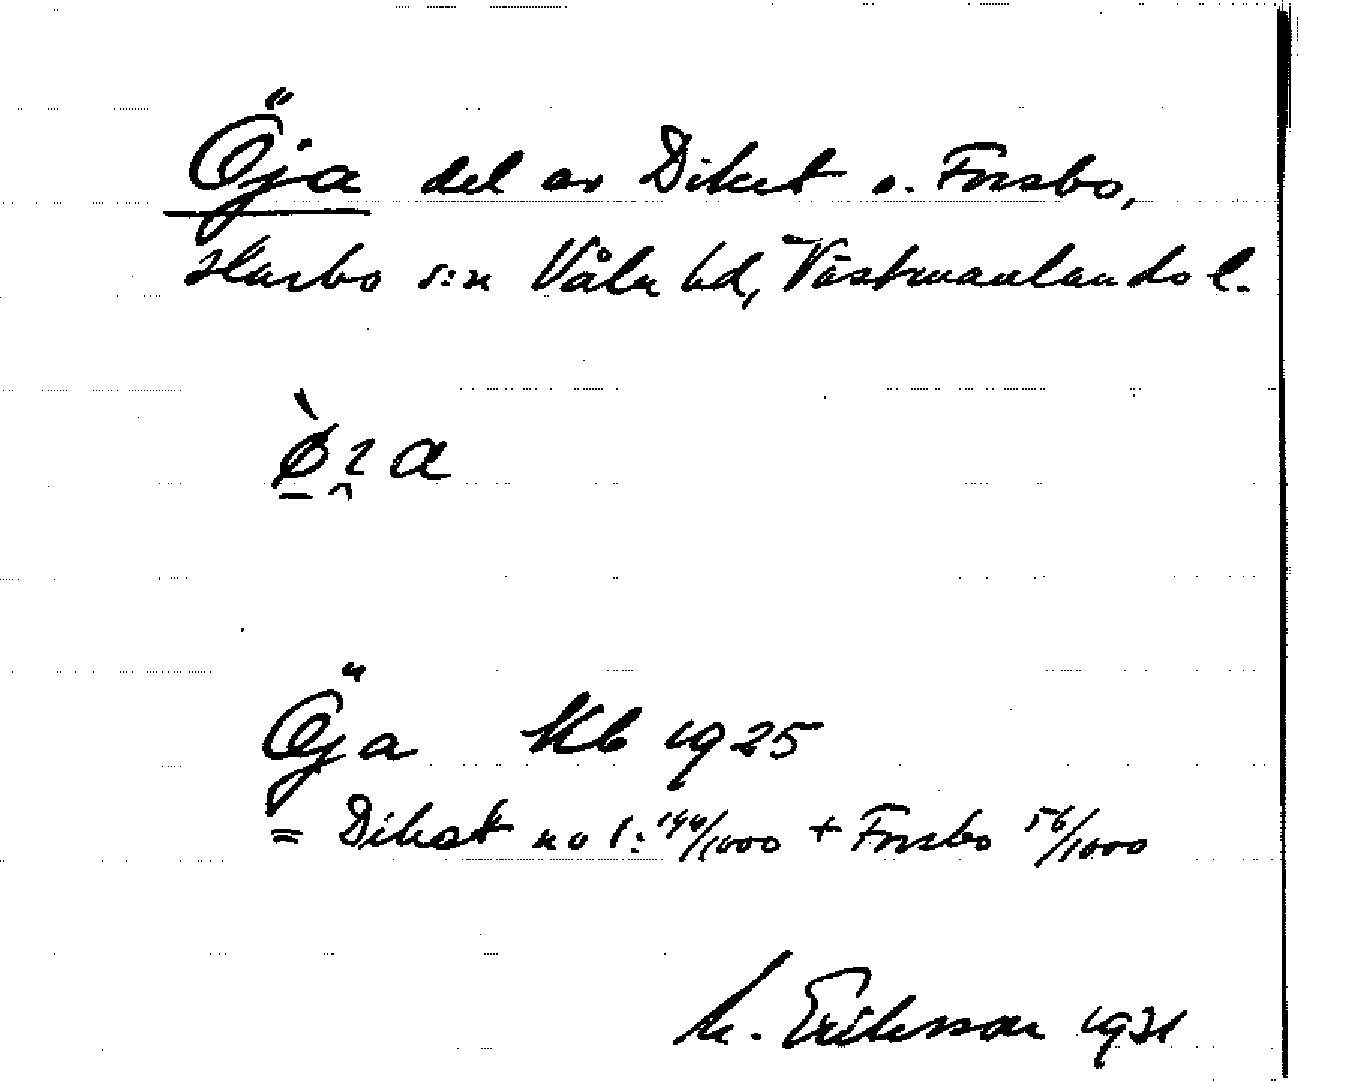 Öja del av Diket o. Forsbo,
Harbo s:n Våla hd, Västmanlands l.
Öja Kb 1925
= Diket no 1: /1000 + Forsbo 56/1000
M. Eriksson 1931